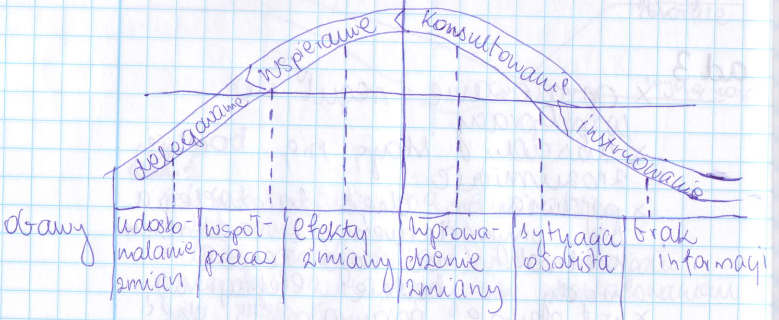 delegowanie
wspieranie
konsultowanie
instruowanie
obawy
udosko-
nalanie
zmian
współ-
praca
efekty
zmiany
wprowa-
dzenie
zmiany
sytuacja
osobista
brak
informacji